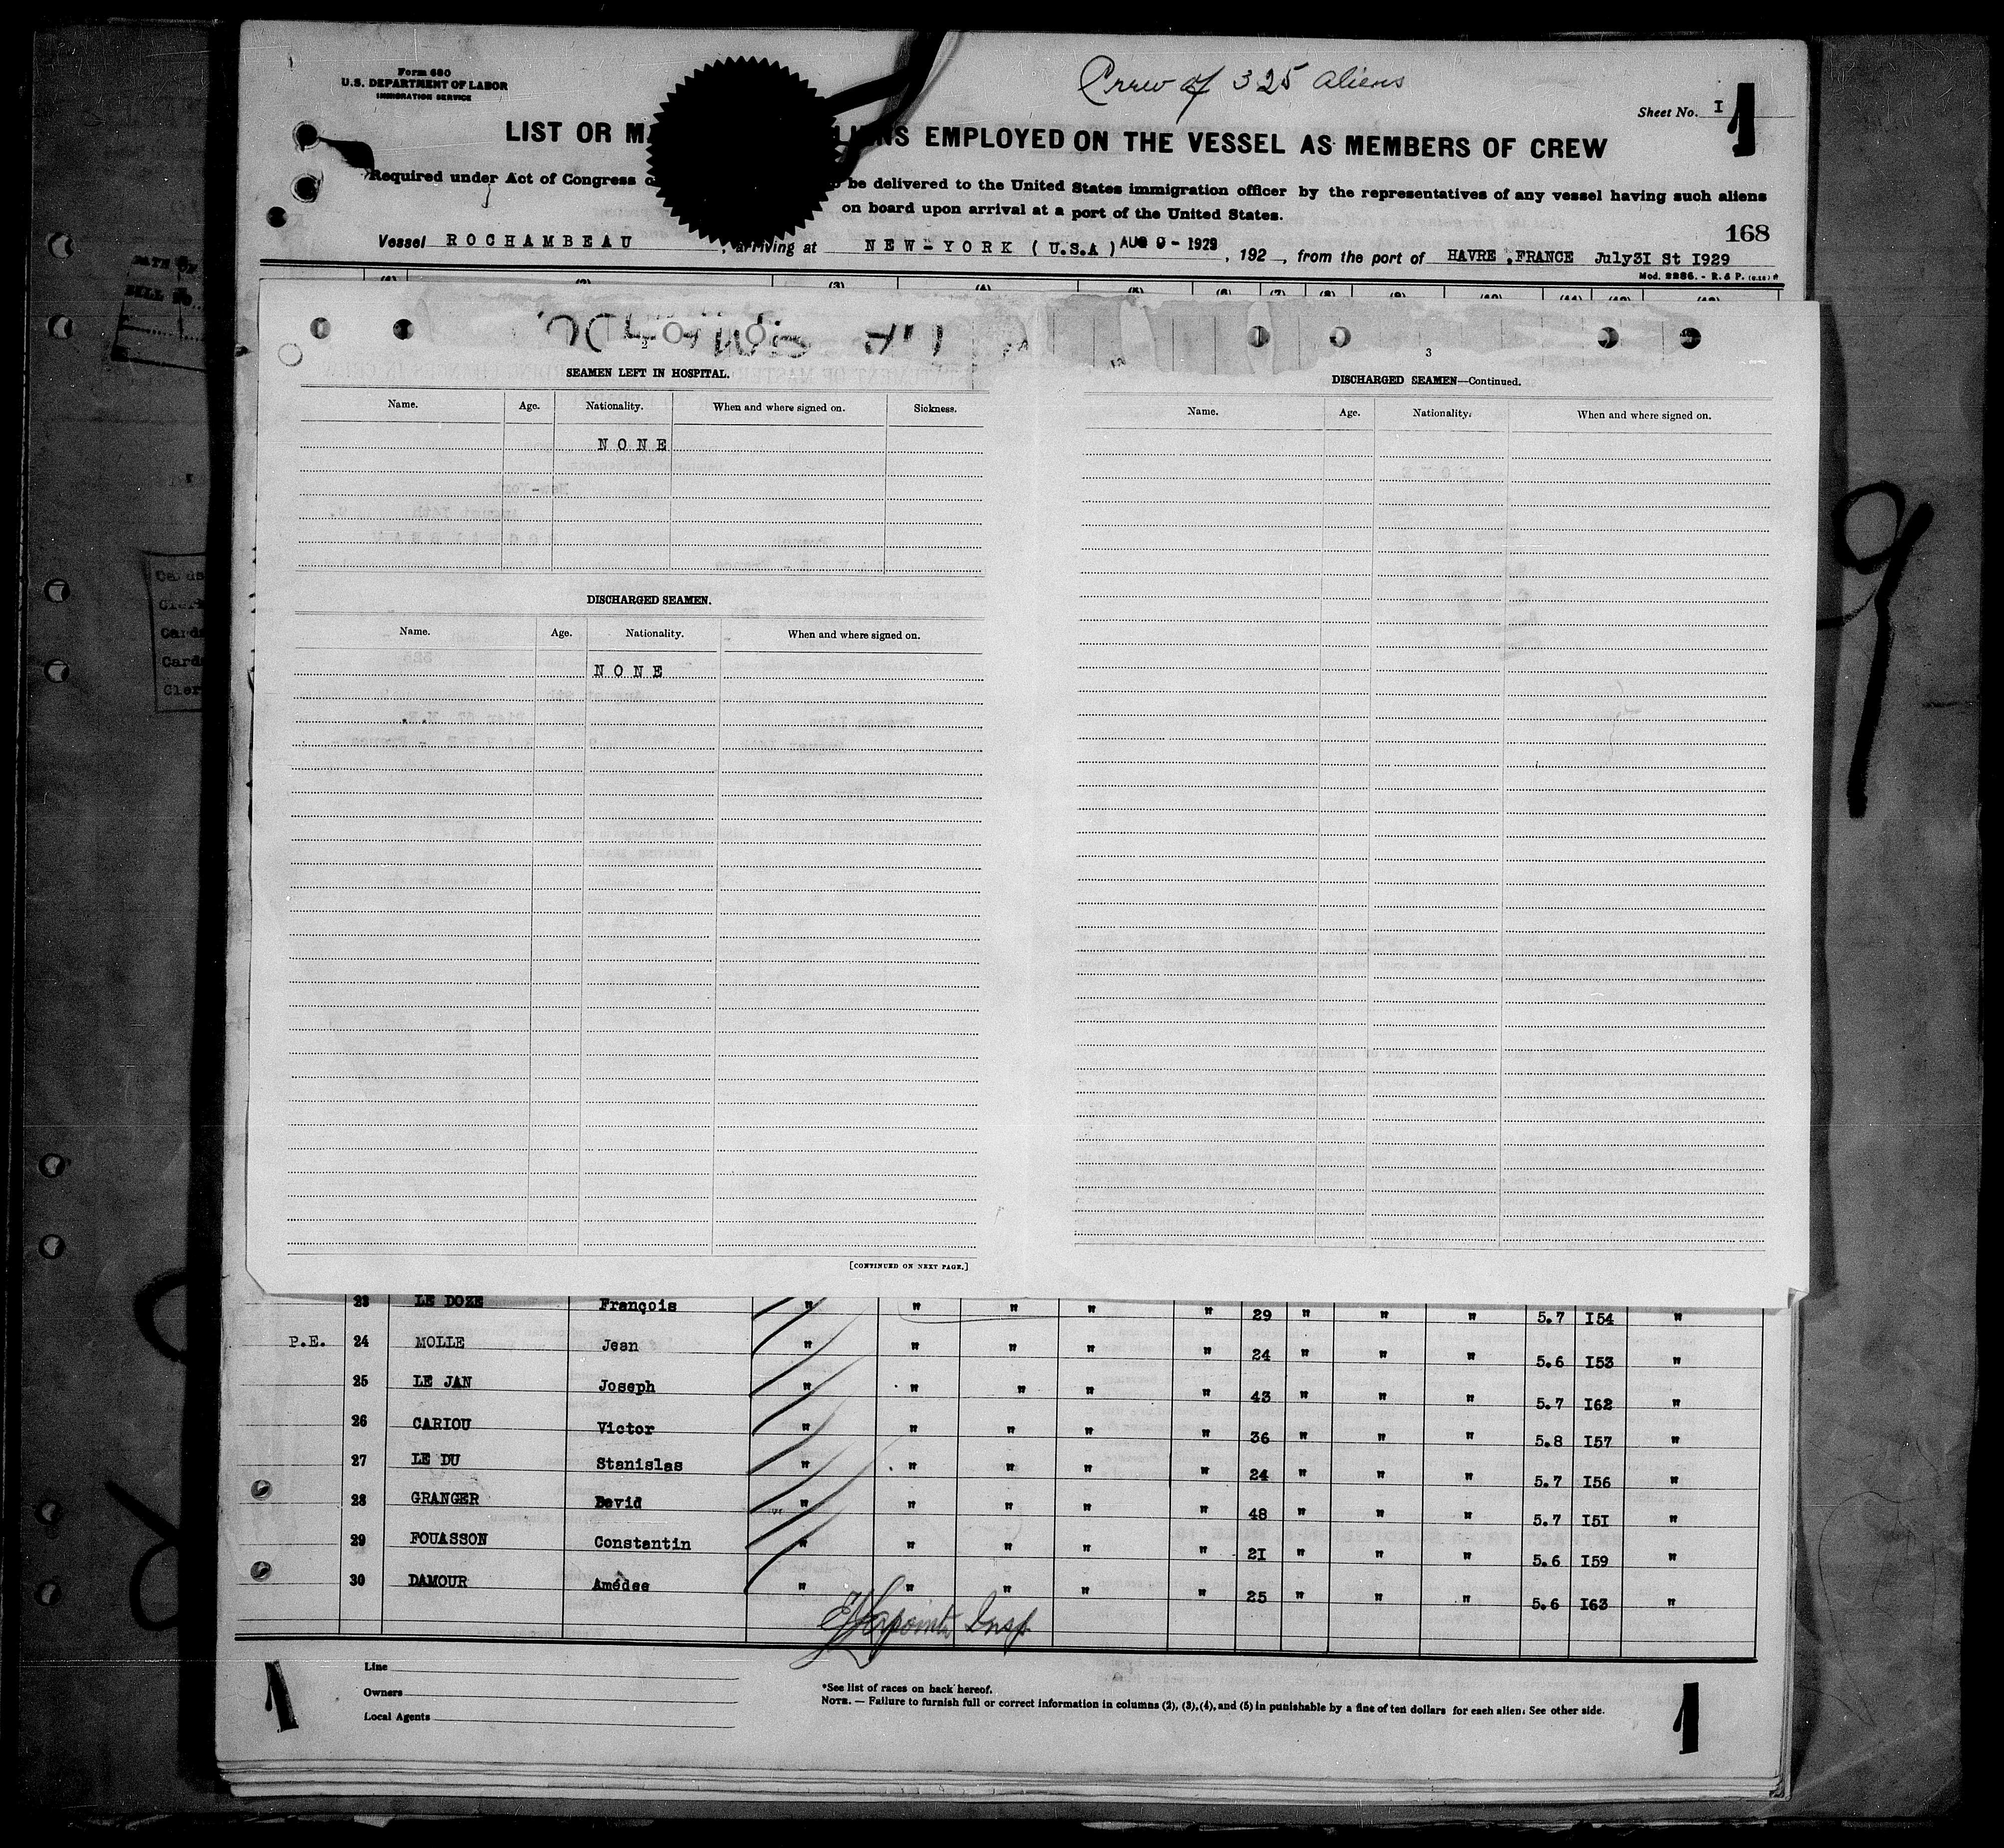 Form 680
U.S. DEPARTMENT OF LABOR
IMMIGRATION SERVICE
Crew of 325 aliens
Sheet No. I
1
LIST OR MA LIENS EMPLOYED ON THE VESSEL AS MEMBERS OF CREW
Required under Act of Congress o be delivered to the United States immigration officer by the representatives of any vessel having such aliens
on board upon arrival at a port of the United States.
168
Vessel ROCHAMBEAU, arriving at NEW-YORK (U.S.A) AUG 9 - 1929, 192 , from the port of HAVRE, FRANCE July 3I St I929
Mod. 2286. - R. & P.
(3) (4)
2
SEAMEN LEFT IN HOSPITAL.
Name. Age. Nationality. When and where signed on. Sickness.
NONE
DISCHARGED SEAMEN.
Name. Age. Nationality. When and where signed on.
NONE
[CONTINUED ON NEXT PAGE.]
3
DISCHARGED SEAMEN—Continued.
Name. Age. Nationality. When and where signed on.
23 LE DOZE François " " " " " 29 " " " 5.7 I54 "
P.E. 24 MOLLE Jean " " " " " 24 " " " 5.6 I53 "
25 LE JAN Joseph " " " " " 43 " " " 5.7 I62 "
26 CARIOU Victor " " " " " 36 " " " 5.8 I57 "
27 LE DU Stanislas " " " " " 24 " " " 5.7 I56 "
28 GRANGER David " " " " " 48 " " " 5.7 I5I "
29 FOUASSON Constantin " " " " " 2I " " " 5.6 I59 "
30 DAMOUR Amédee " " " " " 25 " " " 5.6 I63 "
Insp.
Line
Owners
Local Agents
*See list of races on back hereof.
NOTE. — Failure to furnish full or correct information in columns (2), (3), (4), and (5) in punishable by a fine of ten dollars for each alien. See other side.
1
1
9
Cards
Clerk
Cards
Cards
Cler